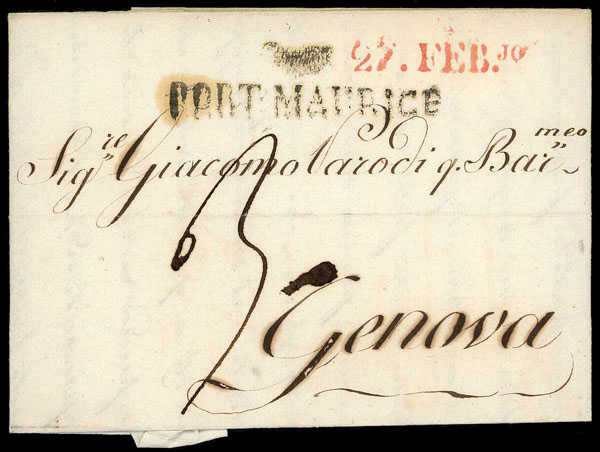 27. FEB.JO
PORT-MAURICE
Sig.re Giacomo Varodi q. Bar.meo
3
Genova